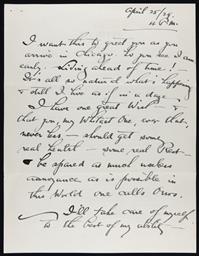 April 25/29.
I want this to greet you as you
arrive in Chicago so you see I am
early - looking ahead of time!
It's all so natural what's happening
& still I live as if in a daze -
I have one great Wish &
that you, my Whitest One, over that,
never less - should get some
real health - some real Rest -
be spared as much useless
annoyance as is possible in
this World one calls Ours.
I'll take care of myself
to the best of my ability -